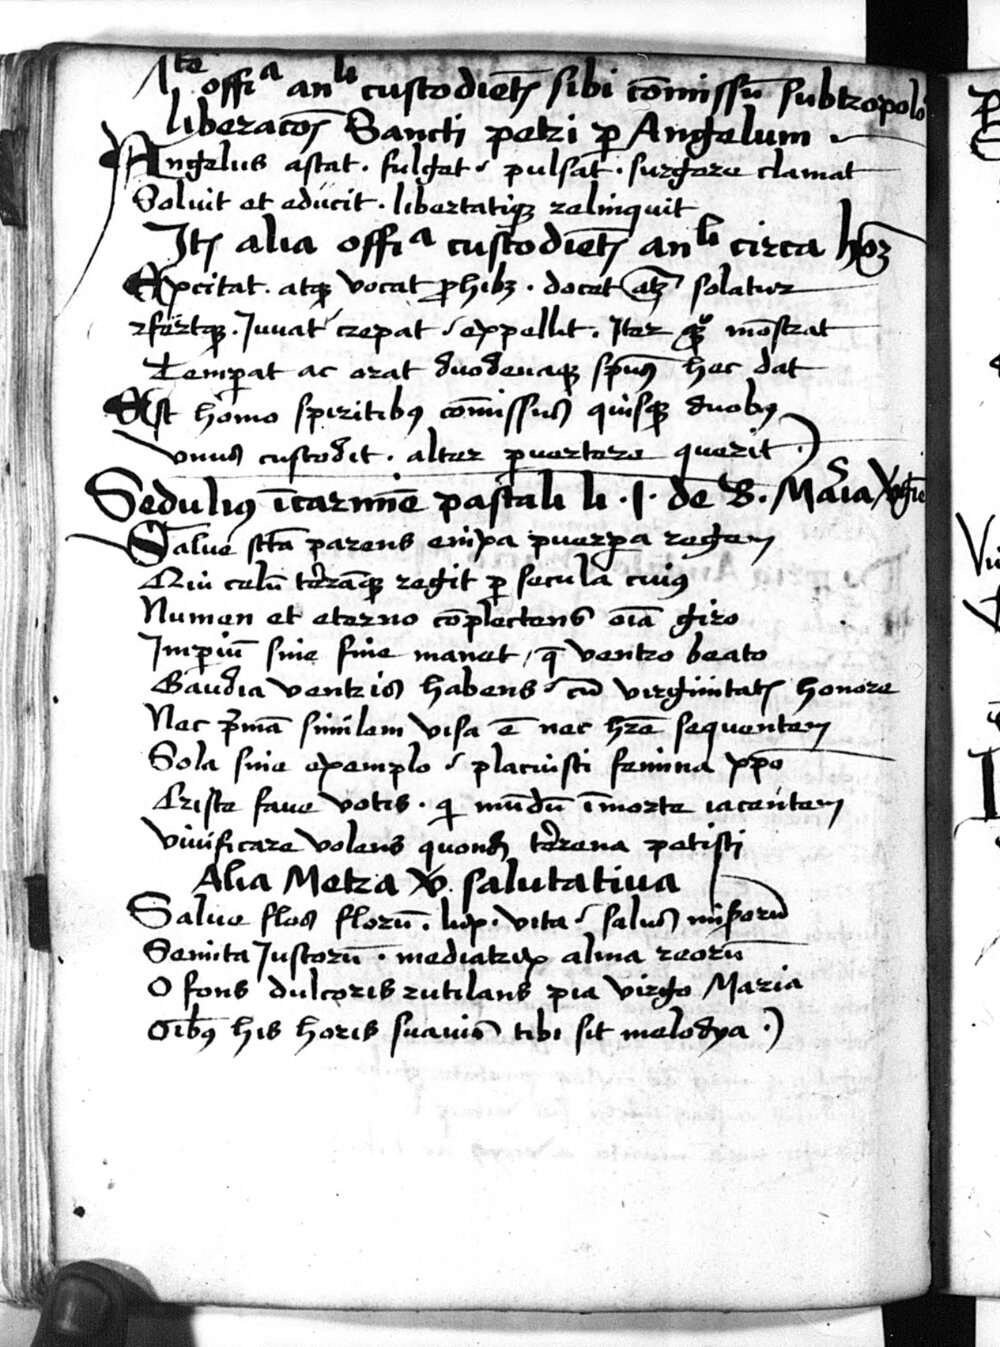 Ite offi a an li custodiēt sibi cōmissū sub tropolo
liberacōs Sancti petri p Angelum
Angelus astat . fulget . pulsat . surgere clamat
Soluit et educit . libertatiqȝ relinquit
Itē alia offi a custodiēt an li circa hoȝ
Excitat . atqȝ vocat phibȝ . docet solatur
rfertqȝ . Iuuat crepat expellit . Iter qȝ mōstrat
Temperat ac orat duodenaqȝ spūs hec dat
Est homo spiritibȝ cōmissus quisqȝ duobȝ
vnus custodit . alter puertere querit .
Sedulius ī carmīe pascali li . I . de B . Maria v̄gīe
Salue scta parens enixa puerpera regem
Qui celū terāqȝ regit p secula cuiȝ
Numen et eterno cōplectens oīa giro
Imperiū sine fine manet / q̄ ventro beato
Gaudia ventris habens cū virginitatis honore
Nec p̄mā similem visa ē nec hr̄e sequentem
Sola sine exemplo placuisti femina xp̄o
Criste faue votis . qi mūdū ī morte iacentem
viuificare volens quondā terena petisti
Alia Metra salutatiua
Salue flos florū . lux . vita salus miserū
Semita Iustorū . mediatrix alma reorū
O fons dulcoris rutilans pia virgo Maria
Oībȝ his horis suauis tibi sit melodya .